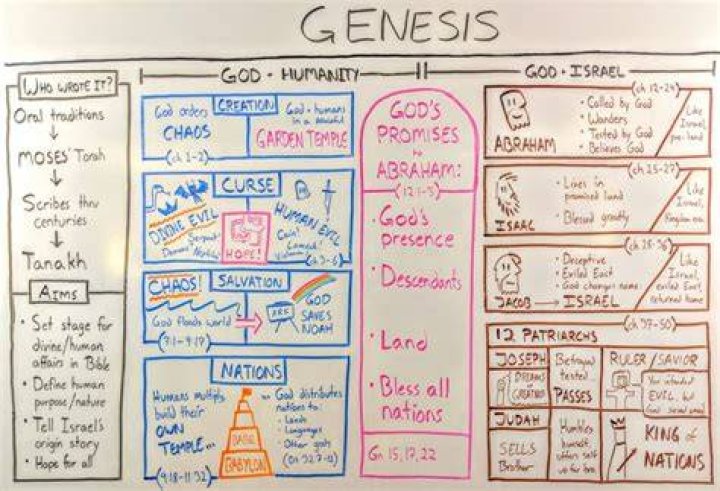 GENESIS
WHO WROTE IT?
Oral traditions
MOSES' Torah
Scribes thru
centuries
Tanakh
AIMS
• Set stage for
divine/human
affairs in Bible
• Define human
purpose/nature
• Tell Israel's
origin story
• Hope for all
GOD • HUMANITY
CREATION
God orders
CHAOS
God + humans
in a
GARDEN TEMPLE
(ch 1-2)
CURSE
DIVINE EVIL
Serpent
HOPE!
HUMAN EVIL
Cain
Lamech
Violence
(ch 3-6)
CHAOS!
SALVATION
God floods world
(7:1-9:17)
ARK
GOD
SAVES
NOAH
NATIONS
Humans multiply
build their
OWN
TEMPLE...
(9:18-11:32)
BABEL
BABYLON
... God distributes
nations to:
• Lands
• Languages
• Other gods
GOD'S
PROMISES
to
ABRAHAM:
(12:1-3)
• God's
presence
• Descendants
• Land
• Bless all
nations
Gn 15, 17, 22
GOD • ISRAEL
(ch 12-24)
ABRAHAM
• Called by God
• Wanders
• Tested by God
• Believes God
Like
Israel,
pre-land
(ch 25-27)
ISAAC
• Lives in
promised land
• Blessed greatly
Like
Israel,
Kingdom era
(ch 28-36)
JACOB → ISRAEL
• Deceptive
• Exiled East
• God changes name
Like
Israel,
exiled East,
returned home
(ch 37-50)
12 PATRIARCHS
JOSEPH
DREAMS
of
GREATNESS
Betrayed
tested...
PASSES
RULER/SAVIOR
You intended
EVIL, but
God
JUDAH
SELLS
Brother
Humbles
himself,
offers self
up for bro
KING of
NATIONS